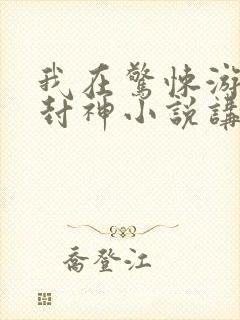 我在驚悚游
封神小說講
喬登江